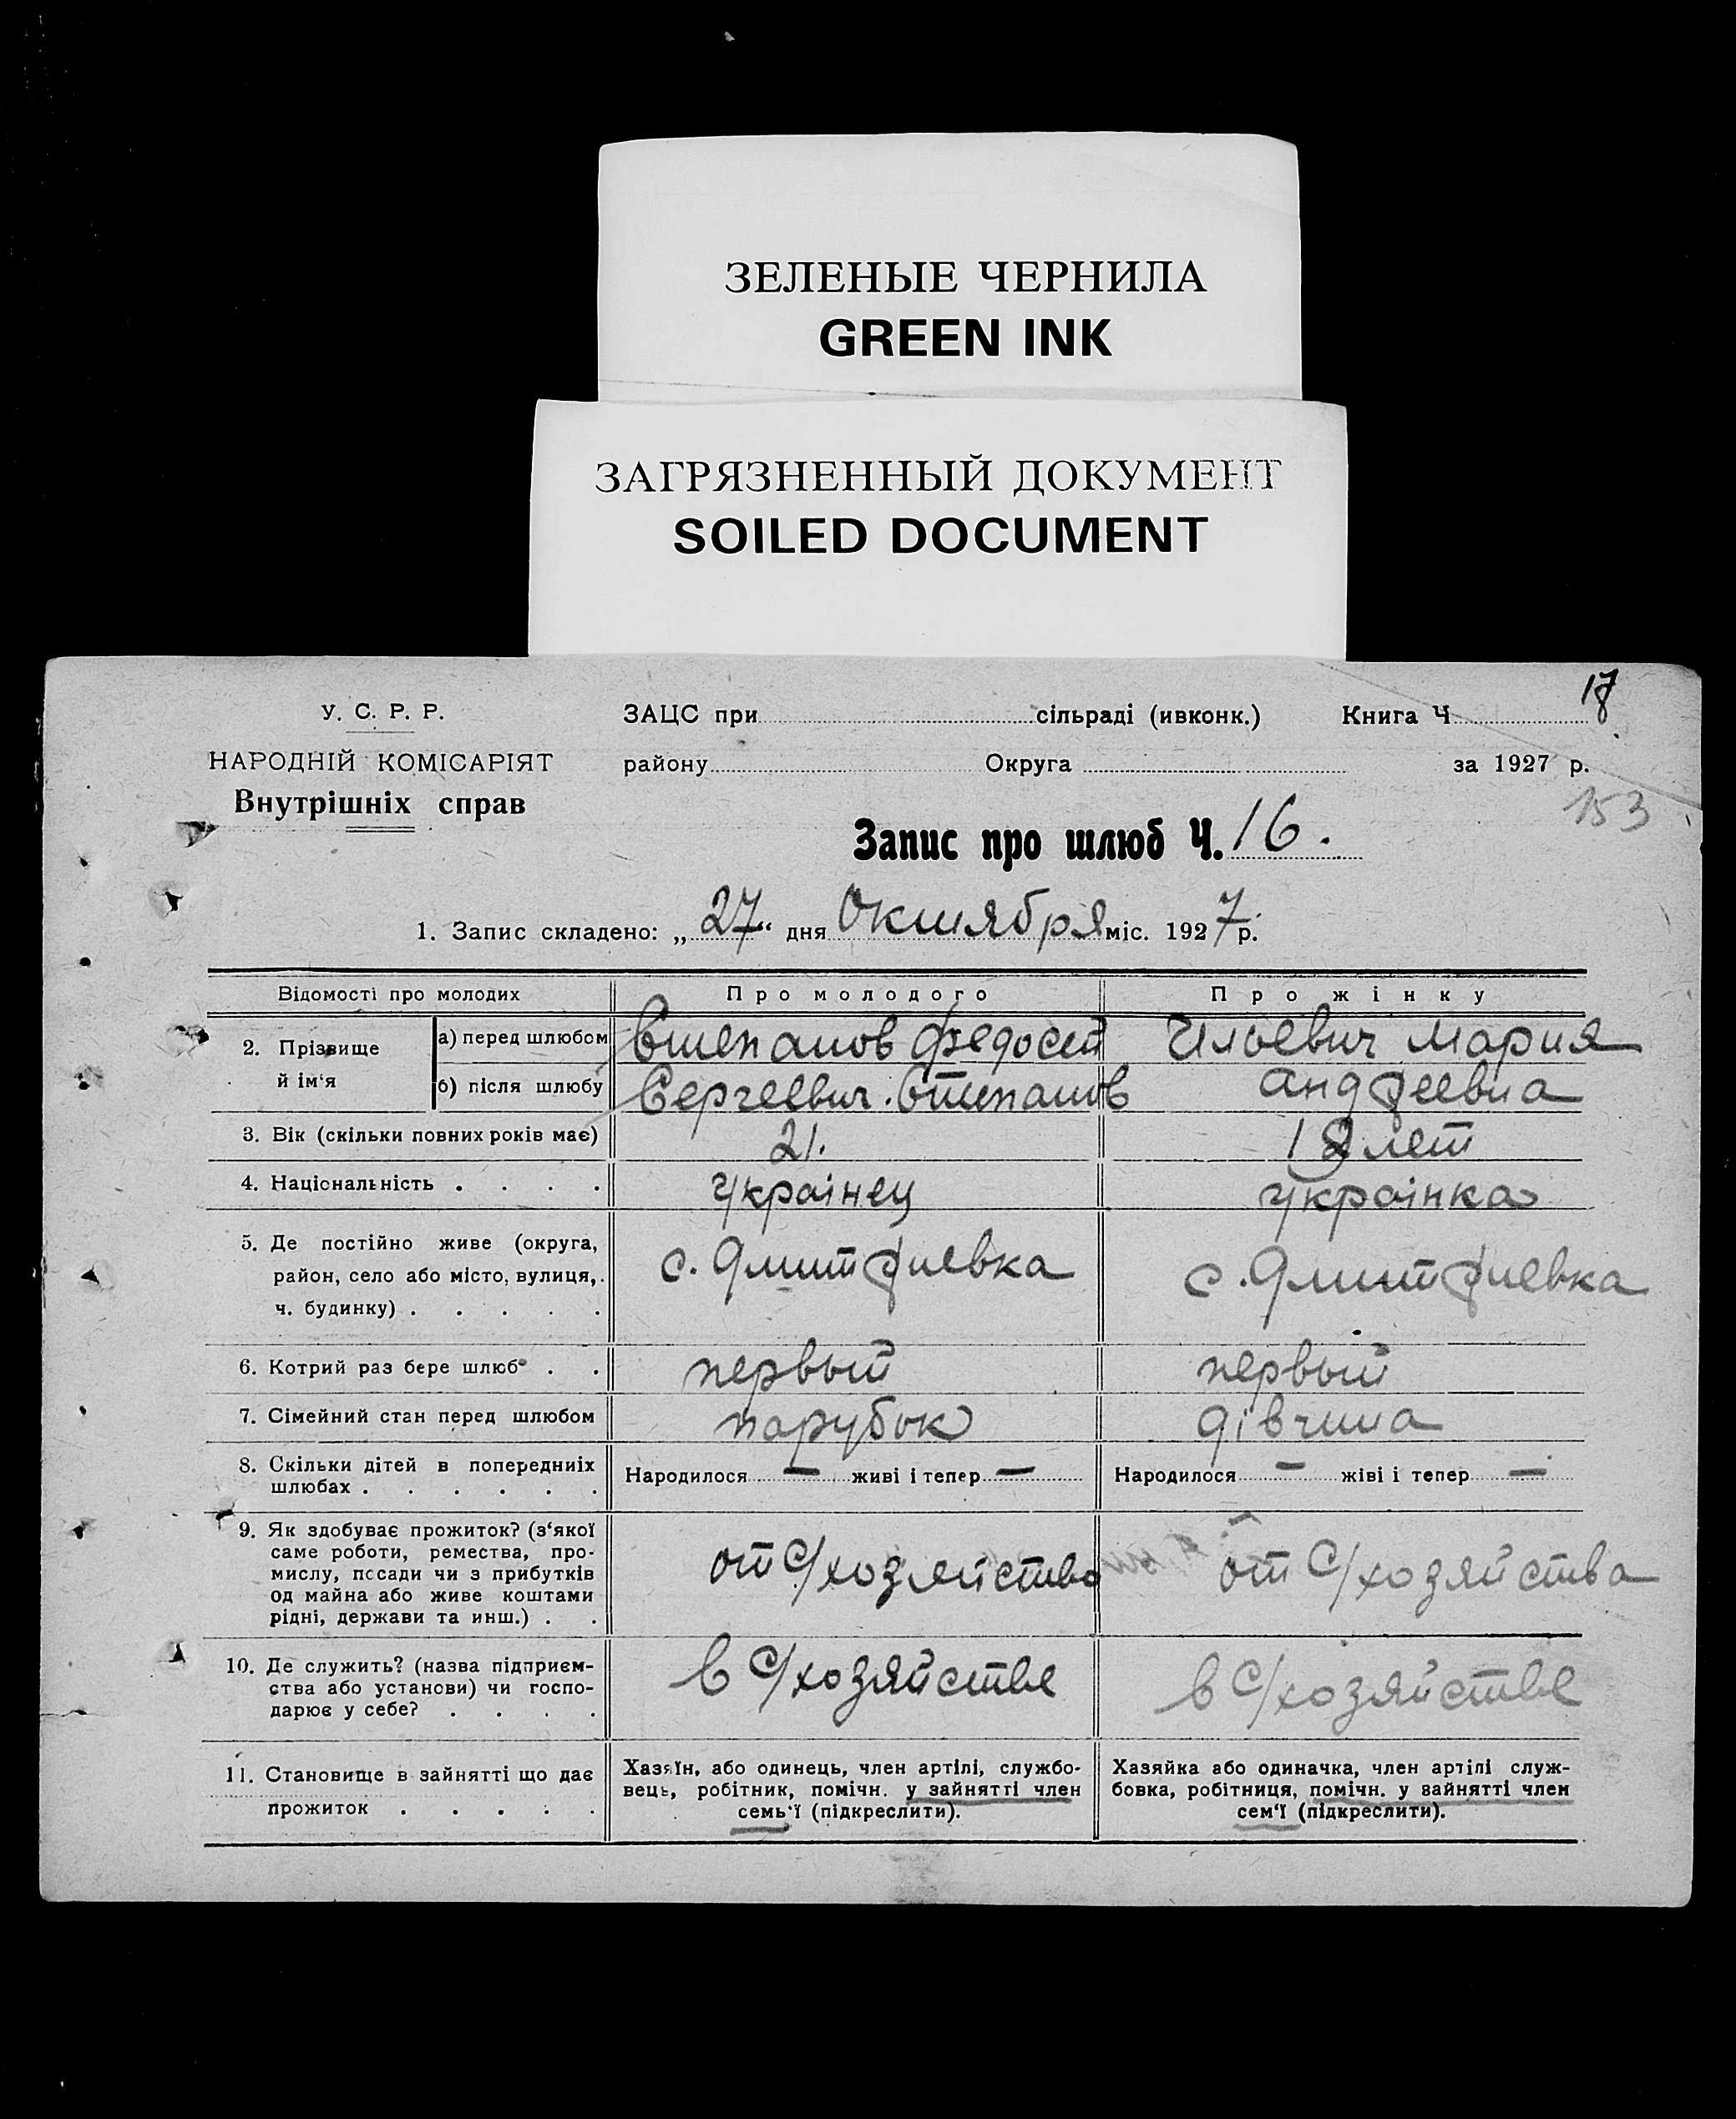 ЗЕЛЕНЫЕ ЧЕРНИЛА
GREEN INK
ЗАГРЯЗНЕННЫЙ ДОКУМЕНТ
SOILED DOCUMENT
У. С. Р. Р.
НАРОДНІЙ КОМІСАРІЯТ
Внутрішніх справ
ЗАЦС при сільраді (ивконк.) Книга Ч
району Округа за 1927 р.
153
Запис про шлюб Ч. 16.
1. Запис складено: „27“ дня Октября міс. 1927 р.
Відомості про молодих Про молодого Про жінку
2. Прізвище й ім‘я
а) перед шлюбом Степанов Федосей Ильевич Мария
б) після шлюбу Сергеевич. Степанов Андреевна
3. Вік (скільки повних років має) 21. 18 лет
4. Національність . . . . Украінец Украінка
5. Де постійно живе (округа,
район, село або місто, вулиця,
ч. будинку) . . . . . с. Дмитриевка с. Дмитриевка
6. Котрий раз бере шлюб . . первый первый
7. Сімейний стан перед шлюбом парубок дівчина
8. Скільки дітей в попередниіх
шлюбах . . . . . . Народилося — живі і тепер — Народилося — жіві і тепер —
9. Як здобуває прожиток? (з‘якої
саме роботи, ремества, про-
мислу, посади чи з прибутків
од майна або живе коштами
рідні, держави та инш.) . . от с/хозяйства от с/хозяйства
10. Де служить? (назва підприєм-
ства або установи) чи госпо-
дарює у себе? . . . . в с/хозяйстве в с/хозяйстве
11. Становище в зайнятті що дає
прожиток . . . . .
Хазяїн, або одинець, член артілі, службо-
вець, робітник, помічн. у зайнятті член
семь‘ї (підкреслити).
Хазяйка або одиначка, член артілі служ-
бовка, робітниця, помічн. у зайнятті член
сем‘ї (підкреслити).